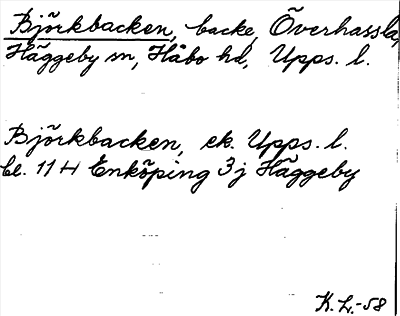 Björkbacken, backe, Överhassla,
Häggeby sn, Håbo hd, Upps. l.
Björkbacken, ek. Upps. l.
bl. 11 H Enköping 3 j Häggeby
K. L. -58